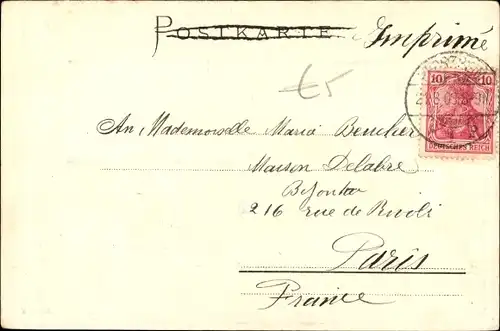 POSTKARTE Imprimé
€5
10 10
DEUTSCHES REICH
An Mademoiselle Maria Beucher
Maison Delabre
Bijoutier
216 rue de Rivoli
Paris
France